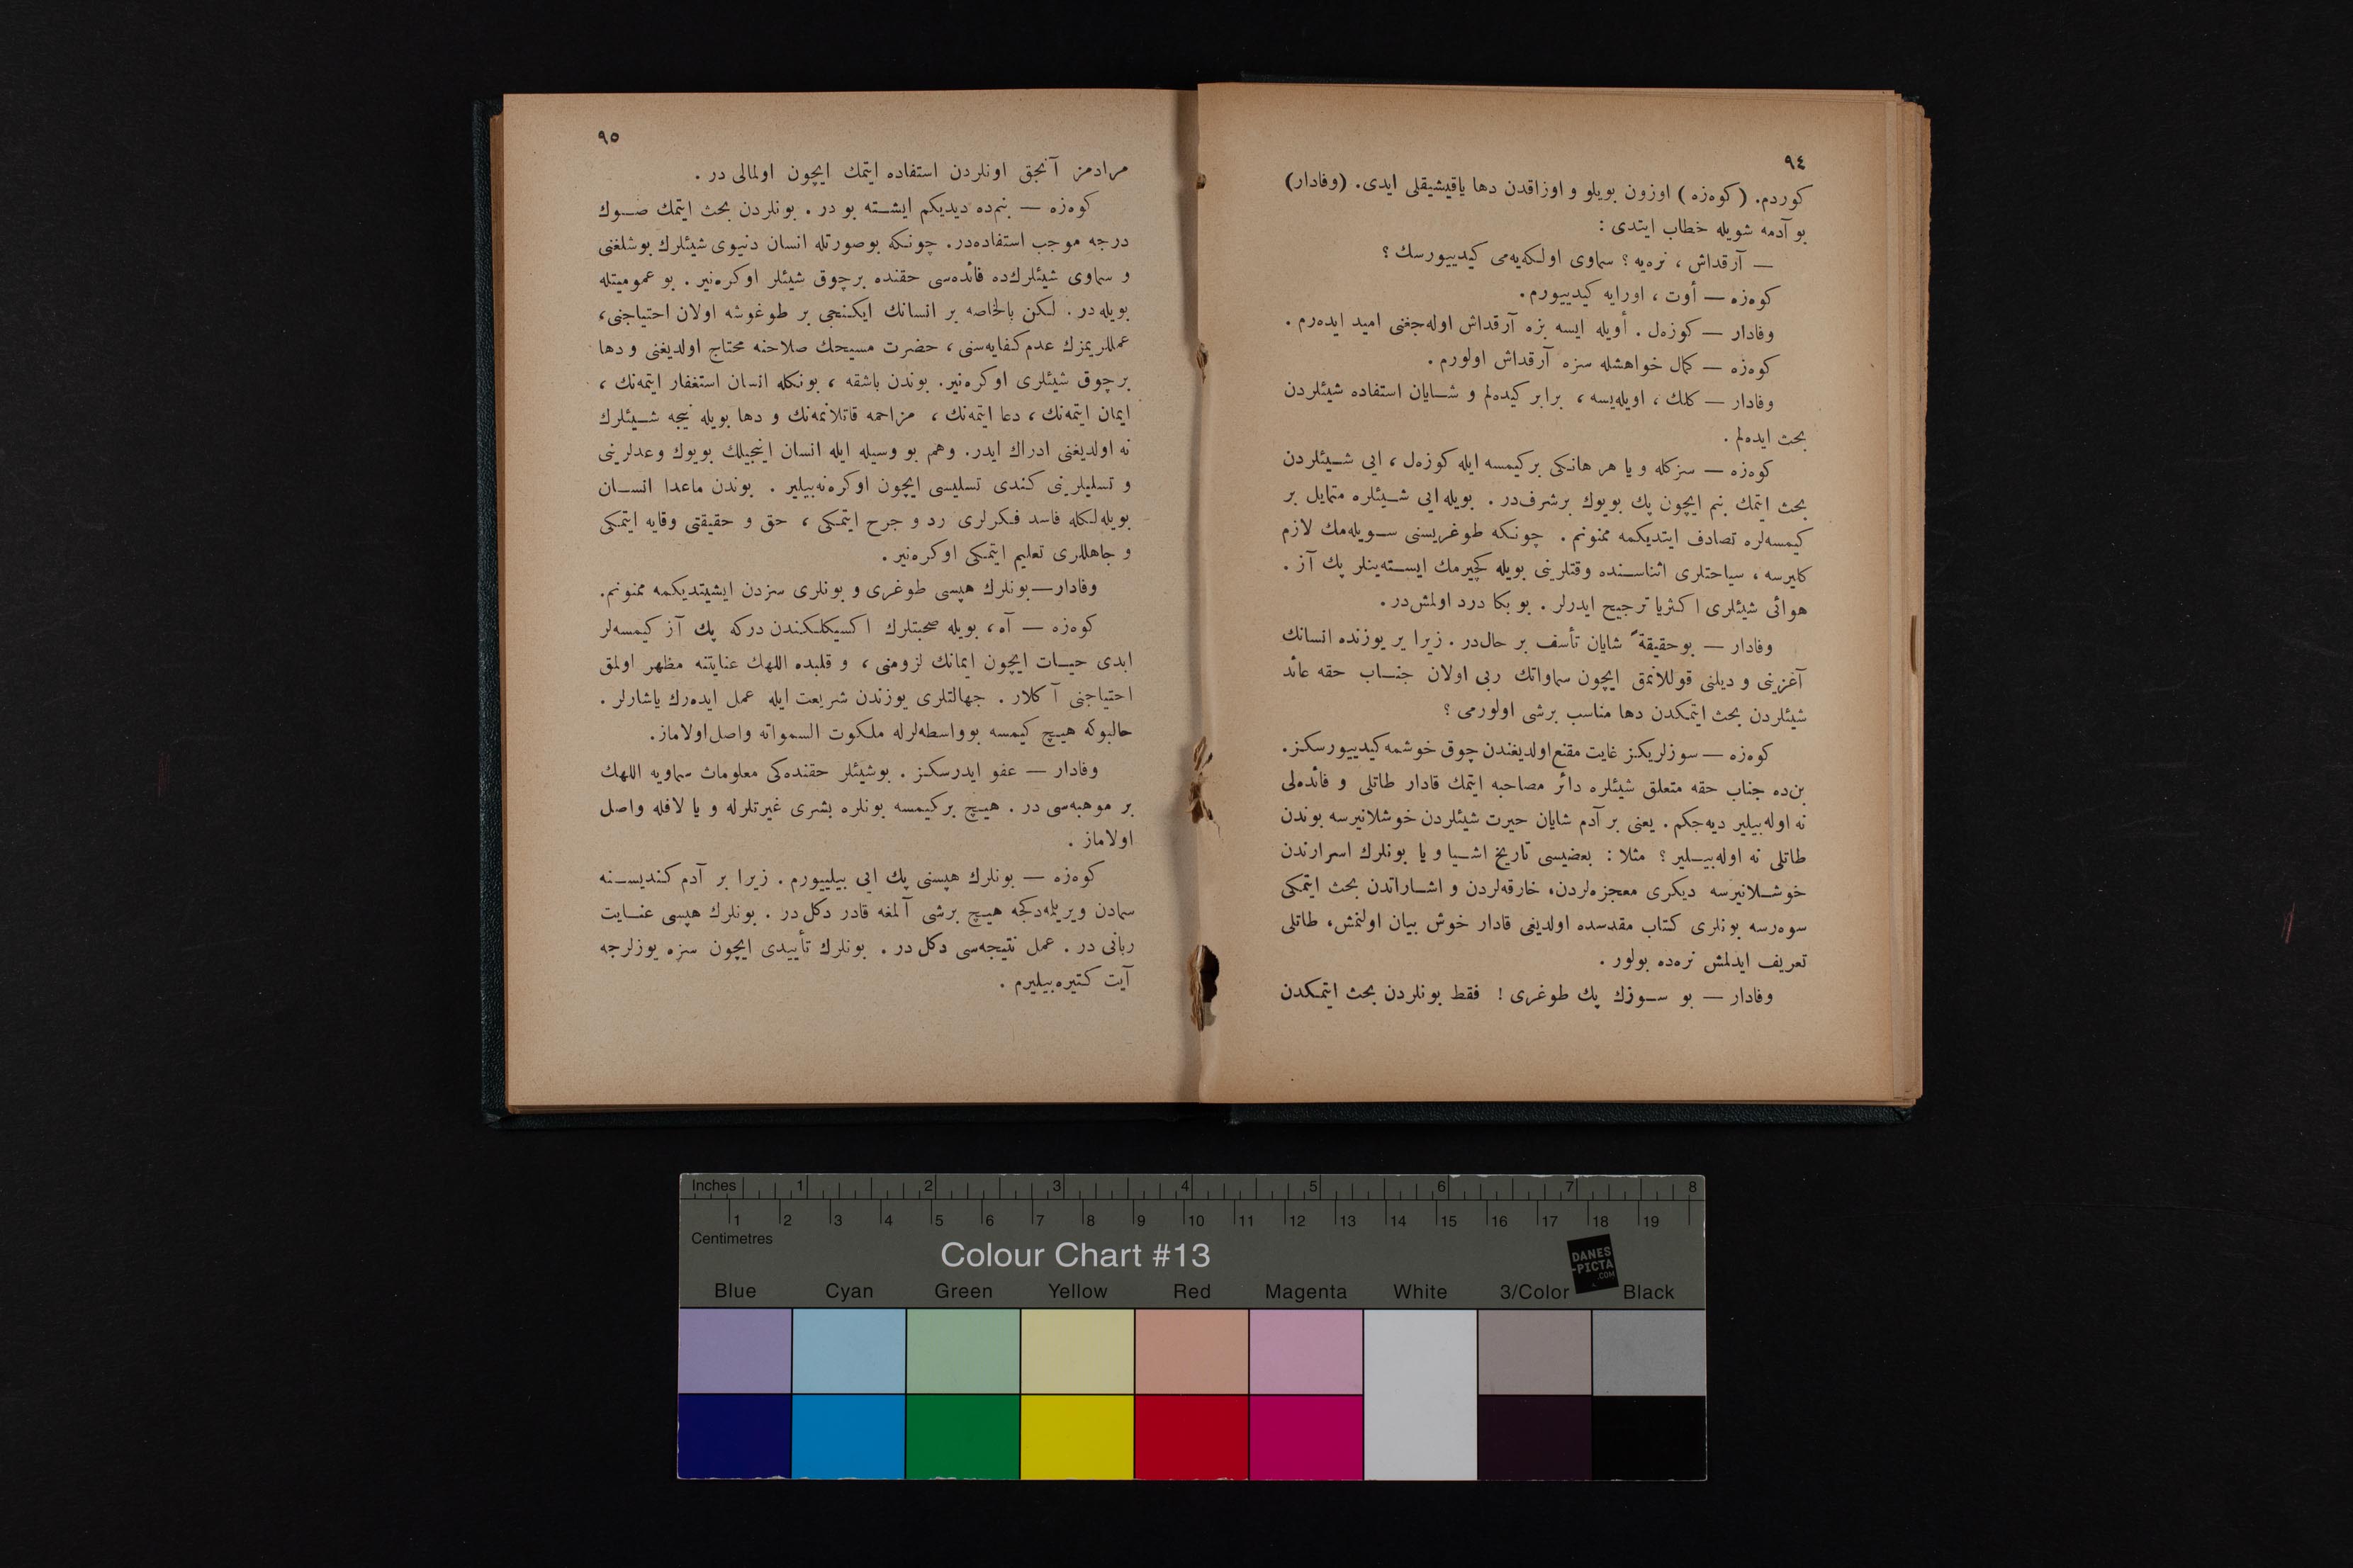 ٩٤
كوردم. (كوەزە) اوزون بويلو و اوزاقدن دها ياقيشيقلی ايدی. (وفادار)
بو آدمه شويله خطاب ايتدی :
— آرقداش ، نرەيه ؟ سماوی اولكەيەمی كيدييورسك ؟
كوەزە — أوت ، اورايه كيدييورم.
وفادار — كوزەل . أويله ايسه بزه آرقداش اولەجغنی اميد ايدەرم .
كوەزە — كمال خواهشله سزه آرقداش اولورم .
وفادار — كلك ، اويلەيسه ، برابر كيدەلم و شايان استفاده شيئلردن
بحث ايدەلم .
كوەزە — سزكله و يا هر هانكی بركيمسه ايله كوزەل ، ايی شيئلردن
بحث ايتمك بنم ايچون پك بويوك برشرف‌در . بويله ايی شيئلره متمايل بر
كيمسەلره تصادف ايتديكمه ممنونم . چونكه طوغريسنی سويلەمك لازم
كليرسه ، سياحتلری اثناسنده وقتلرينی بويله كچيرمك ايستەينلر پك آز .
هوائی شيئلری اكثريا ترجيح ايدرلر . بو بكا درد اولمش‌در .
وفادار — بوحقيقةً شايان تأسف بر حال‌در . زيرا ير يوزنده انسانك
آغزينی و ديلنی قوللانمق ايچون سماواتك ربی اولان جناب حقه عائد
شيئلردن بحث ايتمكدن دها مناسب برشی اولورمی ؟
كوەزە — سوزلريكز غايت مقنع اولديغندن چوق خوشمه كيدييورسكز.
بن‌ده جناب حقه متعلق شيئلره دائر مصاحبه ايتمك قادار طاتلی و فائدەلی
نه اولەبيلير ديەجكم . يعنی بر آدم شايان حيرت شيئلردن خوشلانيرسه بوندن
طاتلی نه اولەبيلير ؟ مثلا : بعضيسی تاريخ اشيا و يا بونلرك اسرارندن
خوشلانيرسه ديكری معجزەلردن، خارقەلردن و اشاراتدن بحث ايتمكی
سوەرسه بونلری كتاب مقدسده اولديغی قادار خوش بيان اولنمش، طاتلی
تعريف ايدلمش نرەده بولور .
وفادار — بو سوزك پك طوغری ! فقط بونلردن بحث ايتمكدن
٩٥
مرادمز آنجق اونلردن استفاده ايتمك ايچون اولمالی در .
كوەزە — بنم‌ده ديديكم ايشته بو در . بونلردن بحث ايتمك صوك
درجه موجب استفادەدر. چونكه بوصورتله انسان دنيوی شيئلرك بوشلغنی
و سماوی شيئلرك‌ده فائدەسی حقنده برچوق شيئلر اوكرەنير . بو عموميتله
بويله در . لكن بالخاصه بر انسانك ايكنجی بر طوغوشه اولان احتياجنی،
عمللريمزك عدم كفايەسنی ، حضرت مسيحك صلاحنه محتاج اولديغنی و دها
برچوق شيئلری اوكرەنير. بوندن باشقه ، بونكله انسان استغفار ايتمەنك ،
ايمان ايتمەنك ، دعا ايتمەنك ، مزاحمه قاتلانمەنك و دها بويله نيجه شيئلرك
نه اولديغنی ادراك ايدر. وهم بو وسيله ايله انسان اينجيلك بويوك وعدلرينی
و تسليلرينی كندی تسليسی ايچون اوكرەنەبيلير . بوندن ماعدا انسان
بويلەلكله فاسد فكرلری رد و جرح ايتمكی ، حق و حقيقتی وقايه ايتمكی
و جاهللری تعليم ايتمكی اوكرەنير .
وفادار—بونلرك هپسی طوغری و بونلری سزدن ايشيتديكمه ممنونم.
كوەزە — آه، بويله صحبتلرك اكسيكلكندن دركه پك آز كيمسەلر
ابدی حيات ايچون ايمانك لزومنی ، و قلبده اللهك عنايتنه مظهر اولمق
احتياجنی آكلار . جهالتلری يوزندن شريعت ايله عمل ايدەرك ياشارلر .
حالبوكه هيچ كيمسه بوواسطەلرله ملكوت السمواته واصل اولاماز.
وفادار — عفو ايدرسكز . بوشيئلر حقندەكی معلومات سماويه اللهك
بر موهبەسی در . هيچ بركيمسه بونلره بشری غيرتلرله و يا لافله واصل
اولاماز .
كوەزە — بونلرك هپسنی پك ايی بيلييورم . زيرا بر آدم كنديسنه
سمادن ويريلمەدكجه هيچ برشی آلمغه قادر دكل در . بونلرك هپسی عنايت
ربانی در . عمل نتيجەسی دكل در . بونلرك تأييدی ايچون سزه يوزلرجه
آيت كتيرەبيليرم .
Inches 1 2 3 4 5 6 7 8
1 2 3 4 5 6 7 8 9 10 11 12 13 14 15 16 17 18 19
Centimetres
Colour Chart #13
DANES
-PICTA
.COM
Blue Cyan Green Yellow Red Magenta White 3/Color Black